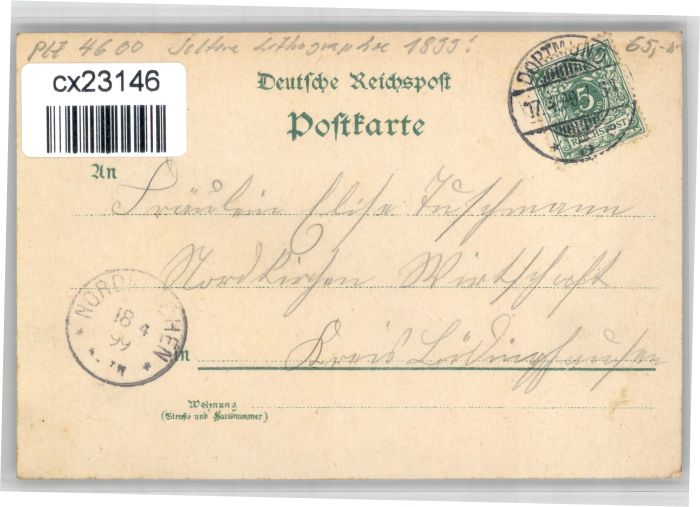 PLZ 4600 Seltene Lithographie 1899! 65,-
cx23146
Deutsche Reichspost
Postkarte
DORTMUND
17.4.99
5
REICHSPOST
An
Fräulein Elise Tuschmann
Nordkirchen Wirtschaft
NORDKIRCHEN
18 4
99
in Kreis Lüdinghausen
Wohnung
(Straße und Hausnummer)